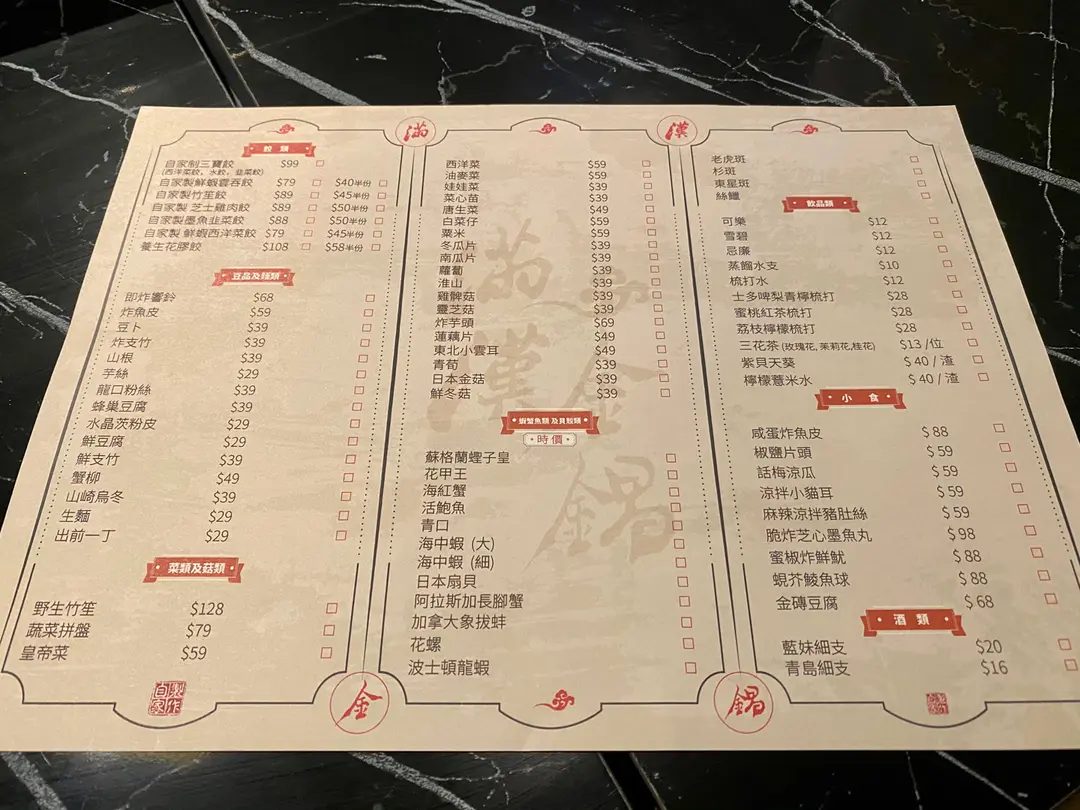 滿
漢
餃 類
自家制三寶餃 $99
(西洋菜餃，水餃，韭菜餃)
自家製鮮蝦雲吞餃 $79 $40半份
自家製竹笙餃 $89 $45半份
自家製 芝士雞肉餃 $89 $50半份
自家製墨魚韭菜餃 $88 $50半份
自家製 鮮蝦西洋菜餃 $79 $45半份
養生花膠餃 $108 $58半份
豆品及麵類
即炸響鈴 $68
炸魚皮 $59
豆卜 $39
炸支竹 $39
山根 $39
芋絲 $29
龍口粉絲 $39
蜂巢豆腐 $39
水晶茨粉皮 $29
鮮豆腐 $29
鮮支竹 $39
蟹柳 $49
山崎烏冬 $39
生麵 $29
出前一丁 $29
菜類及菇類
野生竹笙 $128
蔬菜拼盤 $79
皇帝菜 $59
西洋菜 $59
油麥菜 $59
娃娃菜 $39
菜心苗 $39
唐生菜 $49
白菜仔 $59
粟米 $59
冬瓜片 $39
南瓜片 $39
蘿蔔 $39
淮山 $39
雞髀菇 $39
靈芝菇 $39
炸芋頭 $69
蓮藕片 $49
東北小雲耳 $49
青筍 $39
日本金菇 $39
鮮冬菇 $39
蝦蟹魚類 及貝殼類
時價
蘇格蘭蟶子皇
花甲王
海紅蟹
活鮑魚
青口
海中蝦 (大)
海中蝦 (細)
日本扇貝
阿拉斯加長腳蟹
加拿大象拔蚌
花螺
波士頓龍蝦
老虎斑
杉斑
東星斑
絲鱲
飲品類
可樂 $12
雪碧 $12
忌廉 $12
蒸餾水支 $10
梳打水 $12
士多啤梨青檸梳打 $28
蜜桃紅茶梳打 $28
荔枝檸檬梳打 $28
三花茶(玫瑰花, 茉莉花,桂花) $13 /位
紫貝天葵 $ 40 / 渣
檸檬薏米水 $ 40 / 渣
小 食
咸蛋炸魚皮 $ 88
椒鹽片頭 $ 59
話梅涼瓜 $ 59
涼拌小貓耳 $ 59
麻辣涼拌豬肚絲 $ 59
脆炸芝心墨魚丸 $ 98
蜜椒炸鮮魷 $ 88
蜆芥鯪魚球 $ 88
金磚豆腐 $ 68
酒 類
藍妹細支 $20
青島細支 $16
自家製作
金
鍚
滿漢金鍚